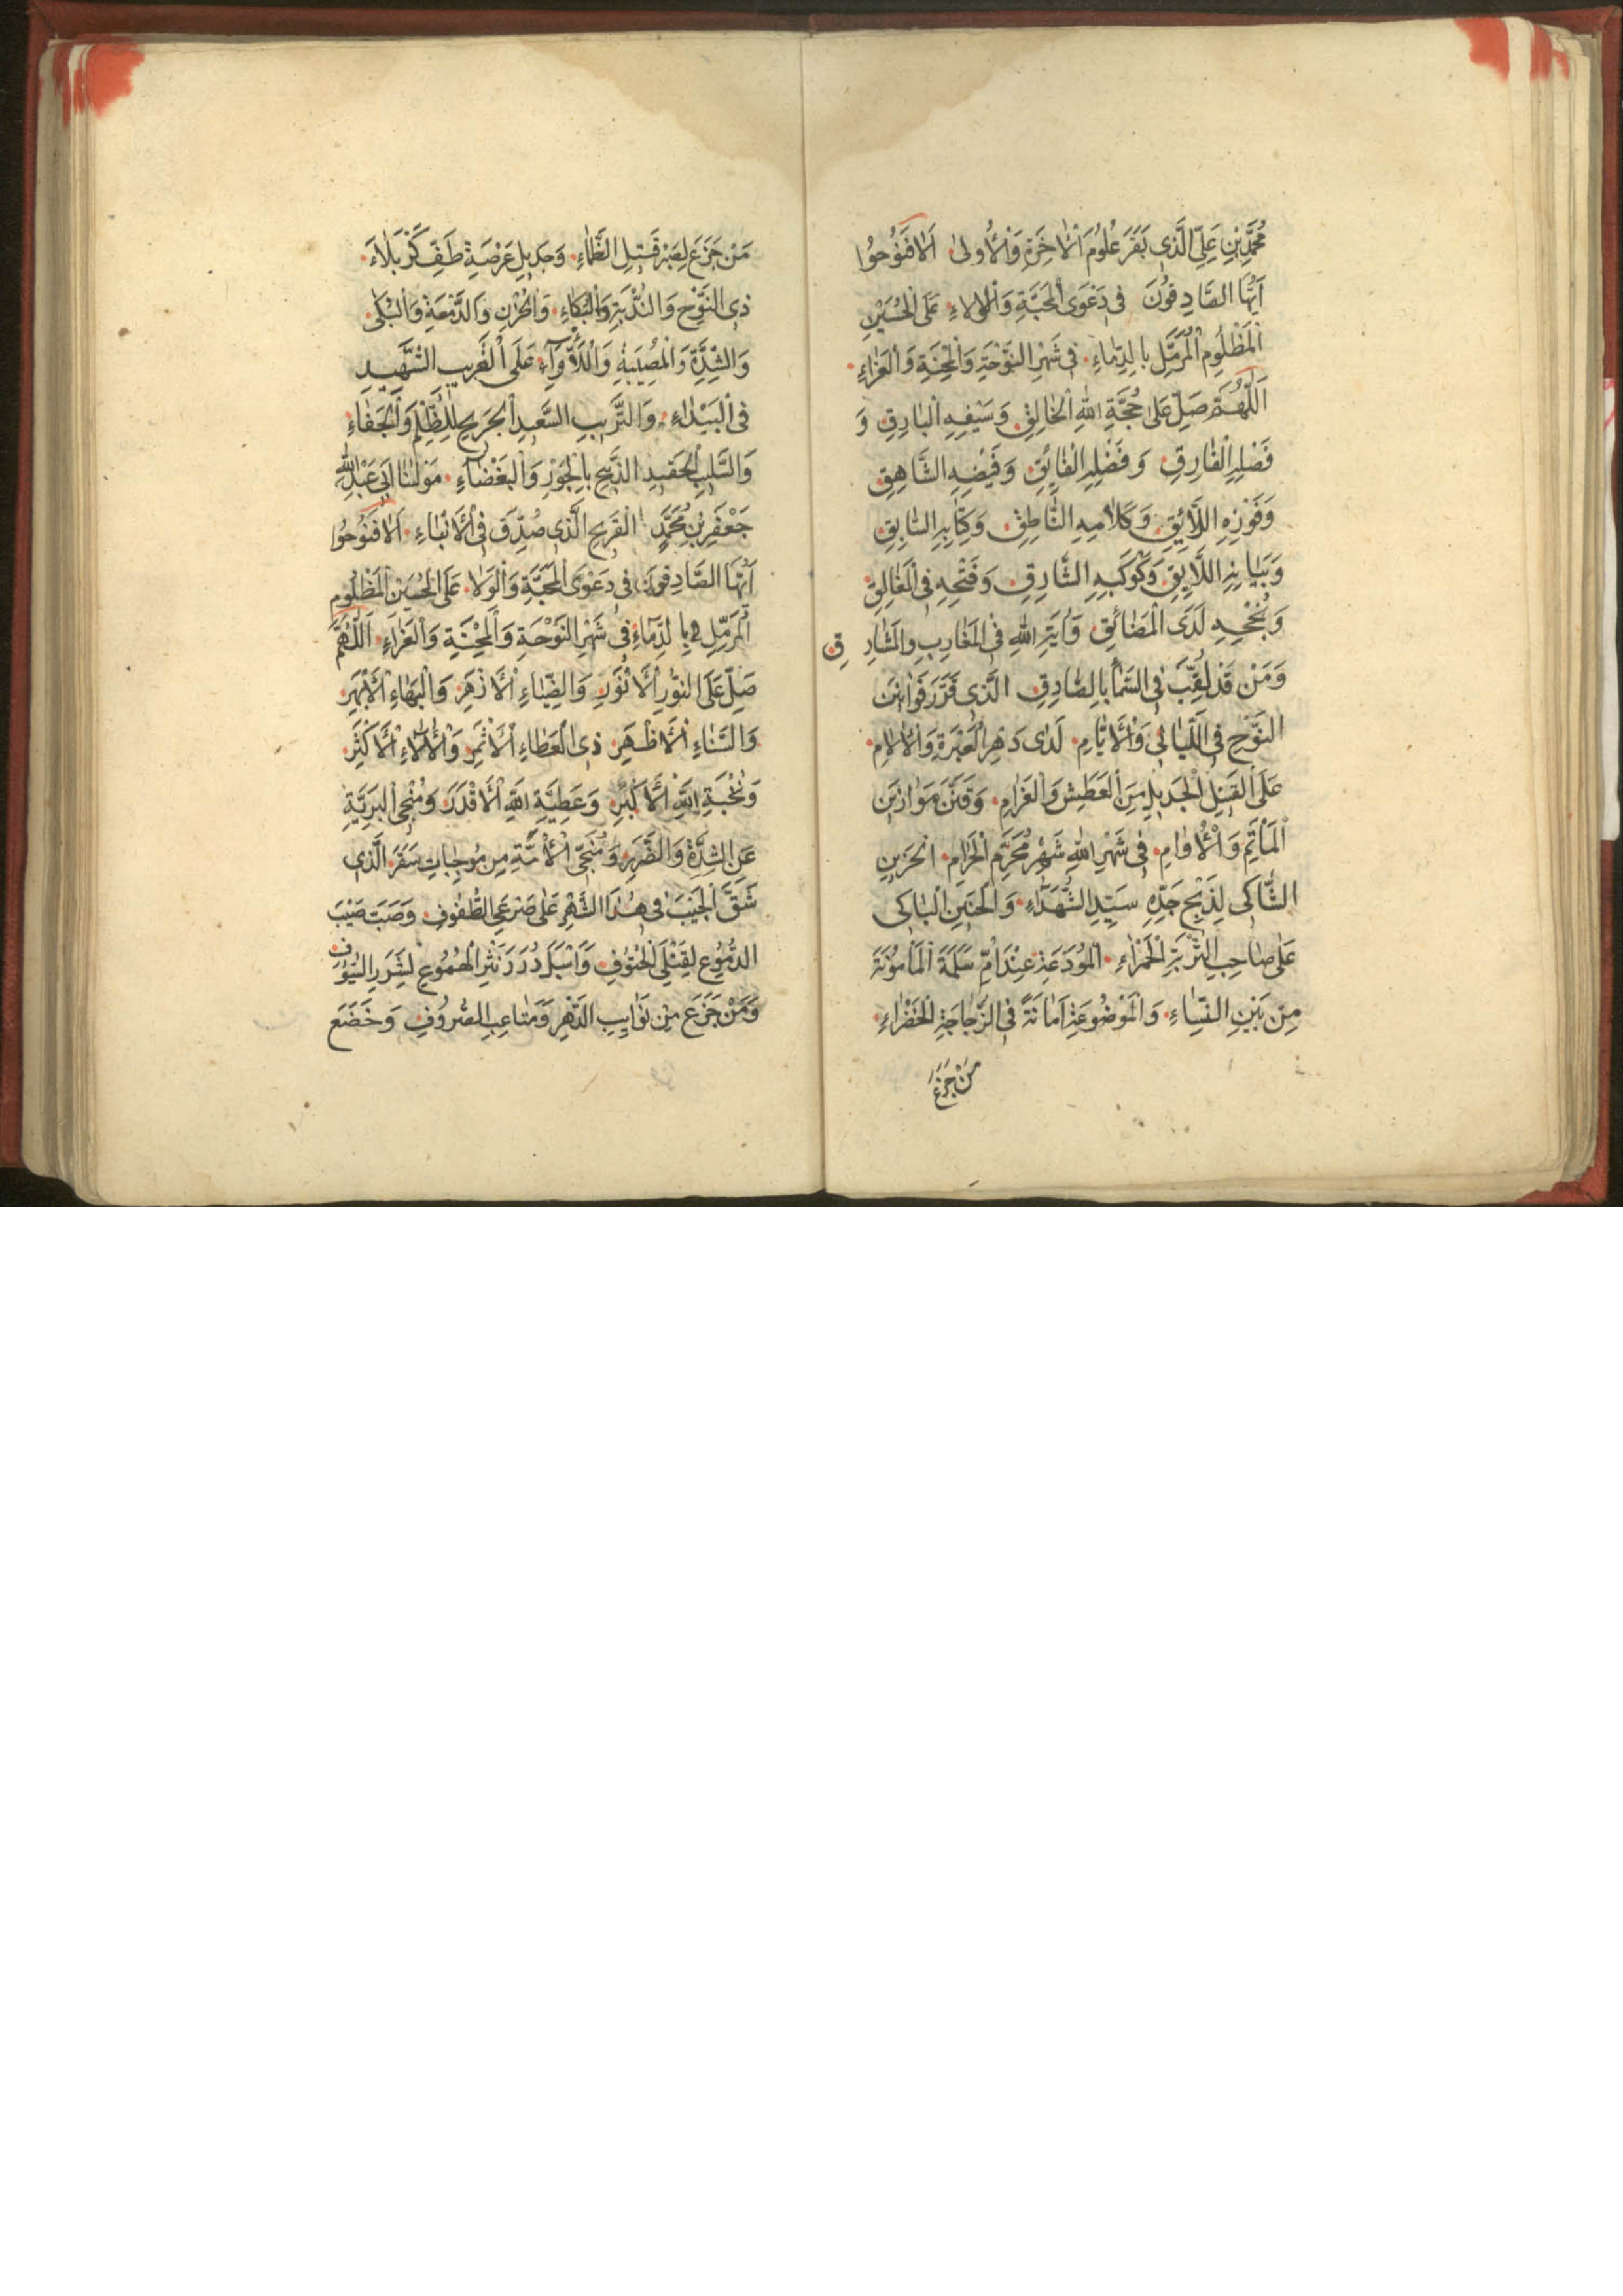 مُحَمَّدِبْنِ عَلِيِّ الَّذِي بَقَرَ عُلُومَ اْلاٰخِرَةِ وَاْلاُولىٰ اَلافَنَوُحوُا
اَيُّهَا الصَّادِقوُنَ فِي دَعْوَى الْمَحَبَّةِ وَالْوَلاءِ عَلَى الْحُسَيْنِ
الْمَظْلُومِ الْمُرَمَّلِ بِالدِّمَاءِ فِي شَهْرِ النَّوْحَةِ وَالْمِحْنَةِ وَالْعَزَاءِ
اَللّٰهُمَّ صَلِّ عَلىٰ حُجَّةِ اللهِ الْخَالِقِ وَسَيْفِهِ الْبَارِقِ وَ
فَصْلِهِ الْفَارِقِ وَفَضْلِهِ الْفَايِقِ وَفَيْضِهِ الشَّاهِقِ
وَفَوْزِهِ اللَّايِقِ وَكَلامِهِ النَّاطِقِ وَكِتَابِهِ السَّابِقِ
وَبَيَانِهِ اللَّايِقِ وَكَوْكَبِهِ الشَّارِقِ وَفَتْحِهِ فِي الْمَغَالِقِ
وَنُجْحِهِ لَدَى الْمَضَائِقِ وَايَةِ اللهِ فِي الْمَغَارِبِ وَالْمَشَارِقِ
وَمَنْ قَدْ لُقِّبَ فِي السَّمَاءِ بِالصَّادِقِ الَّذِي قَرَّرَ قَوَانِينَ
النَّوْحِ فِي اللَّيَالِي وَاْلاَيَّامِ لَدَى دَهْرِ الْعَبْرَةِ وَاْلالامِ
عَلَى الْقَتِيلِ الْجَدِيلِ مِنَ الْعَطَشِ وَالْغَرَامِ وَقَنَّنَ مَوَازِينَ
الْمَأْتَمِ وَاْلاُوَامِ فِي شَهْرِ اللهِ شَهْرِ مُحَرَّمِ الْحَرَامِ الْحَزِينِ
الشَّاكِي لِذَبْحِ جَدِّهِ سَيِّدِ الشُّهَدَاءِ وَالْحَنِينِ الْبَاكِي
عَلىٰ صَاحِبِ التُّرْبَةِ الْحَمْرَاءِ الْمُوْدَعَةِ عِنْدَ اُمِّ سَلَمَةَ الْمَأْمُونَةَ
مِنْ بَيْنِ النِّسَاءِ وَالْمَوْضُوعَةِ اَمَانَةً فِي الزُّجَاجَةِ الْخَضْرَاءِ
مَنْ جَزَعَ
مَنْ جَزَعَ لِصَبْرِ قَتِيلِ الظَّمَاءِ وَجَدِيلِ عَرْصَةِ طَفِّ كَرْبَلاءَ
ذِي النَّوْحِ وَالنُّدْبَةِ وَالْبُكَاءِ وَالْحُزْنِ وَالدَّمْعَةِ وَالْبَلىٰ
وَالشِّدَّةِ وَالْمُصِيبَةِ وَاللَّأْوَاءِ عَلَى الْغَرِيبِ الشَّهِيدِ
فِي الْبَيْدَاءِ وَالتَّرِيبِ السَّعِيدِ الْجَرِيحِ لِلظُّلْمِ وَالْجَفَاءِ
وَالسَّلِيبِ الْحَفِيدِ الذَّبِيحِ بِالْجَوْرِ وَالْبَغْضَاءِ مَوْلٰنَا اَبِي عَبْدِ اللهِ
جَعْفَرِ بْنِ مُحَمَّدٍ الْقَرِيحِ الَّذِي صُدِّقَ فِي اْلاَنْبَاءِ اَلافَنَوُحوُا
اَيُّهَا الصَّادِقوُنَ فِي دَعْوَى الْمَحَبَّةِ وَالْوَلا عَلَى الْحُسَيْنِ الْمَظْلُومِ
الْمُرَمَّلِ بِالدِّمَاءِ فِي شَهْرِ النَّوْحَةِ وَالْمِحْنَةِ وَالْعَزَاءِ اَللّٰهُمَّ
صَلِّ عَلَى النُّورِ اْلاَنْوَرِ وَالضِّيَاءِ اْلاَزْهَرِ وَالْبَهَاءِ اْلاَبْهَرِ
وَالسَّنَاءِ اْلاَظْهَرِ ذِي الْعَطَاءِ اْلاَثْمَرِ وَاْلالاءِ اْلاَكْثَرِ
وَنُخْبَةِ اللهِ اْلاَكْبَرِ وَعَطِيَّةِ اللهِ اْلاَقْدَرِ وَمُنْجِي الْبَرِيَّةِ
عَنِ الشِّدَّةِ وَالضَّرَرِ وَمُنَجِّي اْلاُمَّةِ مِنْ مُوجِبَاتِ سَقَرَ الَّذِي
شَقَّ الْجَيْبَ فِي هٰذَا الشَّهْرِ عَلىٰ صَرْعَى الطُّفُوفِ وَصَبَّ صَيْبَ
الدُّمُوعِ لِقَتْلَى الْحُتُوفِ وَاَسْبَلَ دُرَرَ نَثْرِ الْهُمُوعِ لِشَرَرِ السُّيُوفِ
وَمَنْ جَزَعَ مِنْ نَوَايِبِ الدَّهْرِ وَمَتَاعِبِ الصُّرُوفِ وَخَضَعَ